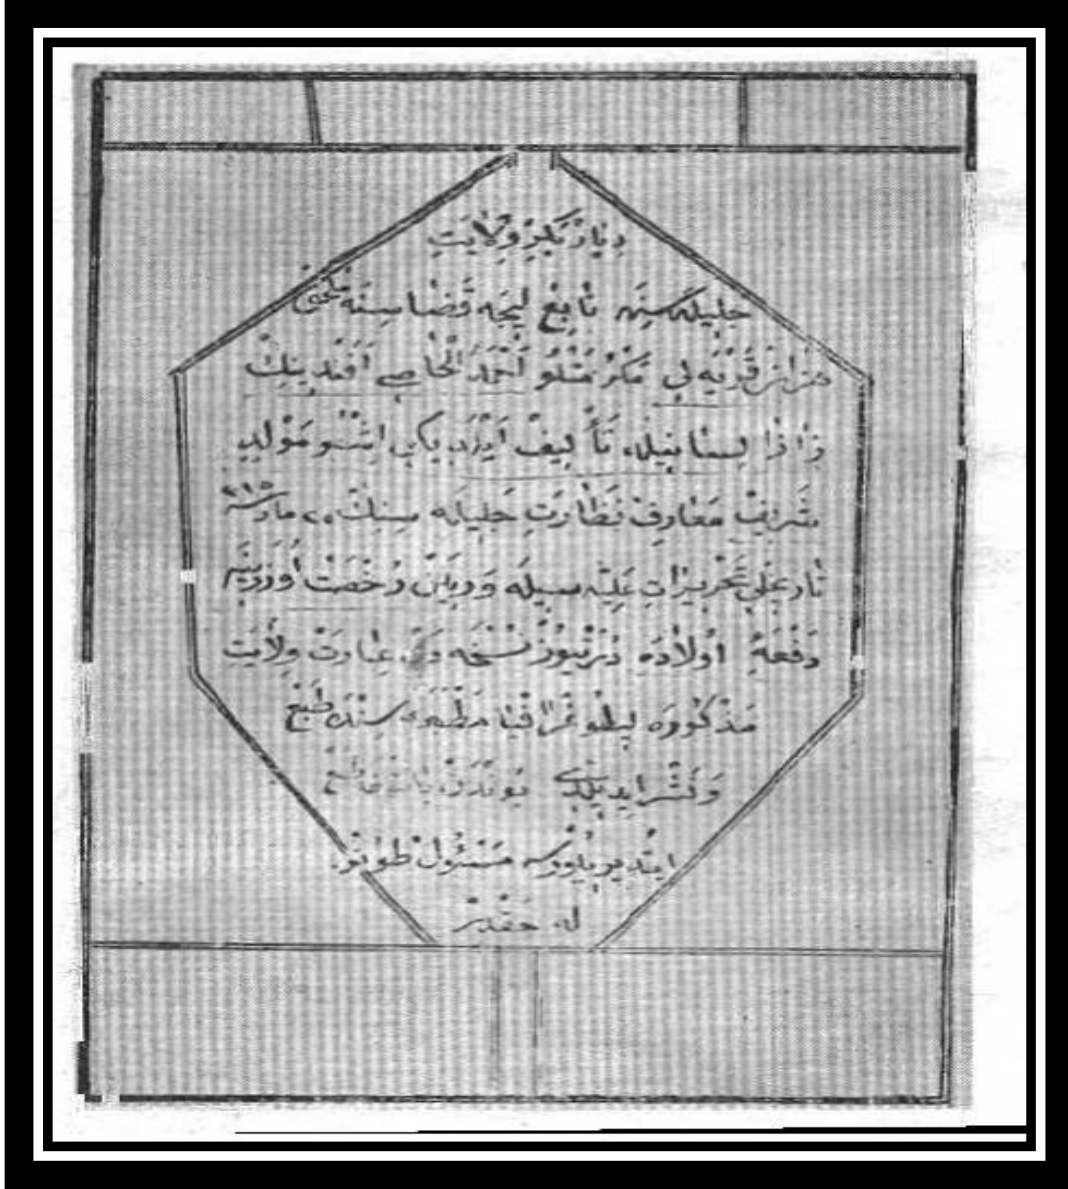 دِيَارْبَكِرْ وِلَايَتِ
جَلِيلَه سِنَه تَابِعْ لِيجَه قَضَا سِنَه مُلْحَقْ
هَزَانْ قَرْيَه لِى مَكْرُمَتْلُو أَحْمَدُ الْخَاصِى أَفَنْدِينِكْ
زَازَا لِسَانِيلَه تَأْلِيفْ اَيْلَدِيكِى اِشْبُو مَوْلِدِ
شَرِيفْ مَعَارِفْ نَظَارَتِ جَلِيلَه سِنِكْ مَارْتْ
تَارِيخْلِى تَحْرِيرَاتِ عَلِيَّه سِيلَه وَرِيلَنْ رُخْصَتْ اُوزَرِينَه
دَفْعَهِٔ اُولَادَه دُرْتْيُوزْ نُسْخَه عِبَارَتْ وِلَايَت
مَذْكُورَه لِيطُوغْرَافْيَا مَطْبَعَه سِنْدَه طَبْعْ
وَنَشْر اِيدِيلْدِى
اِيتْدِيرِيلُورْسَه مَسْئُولْ طُوتُو
لَه جَقْدِرْ